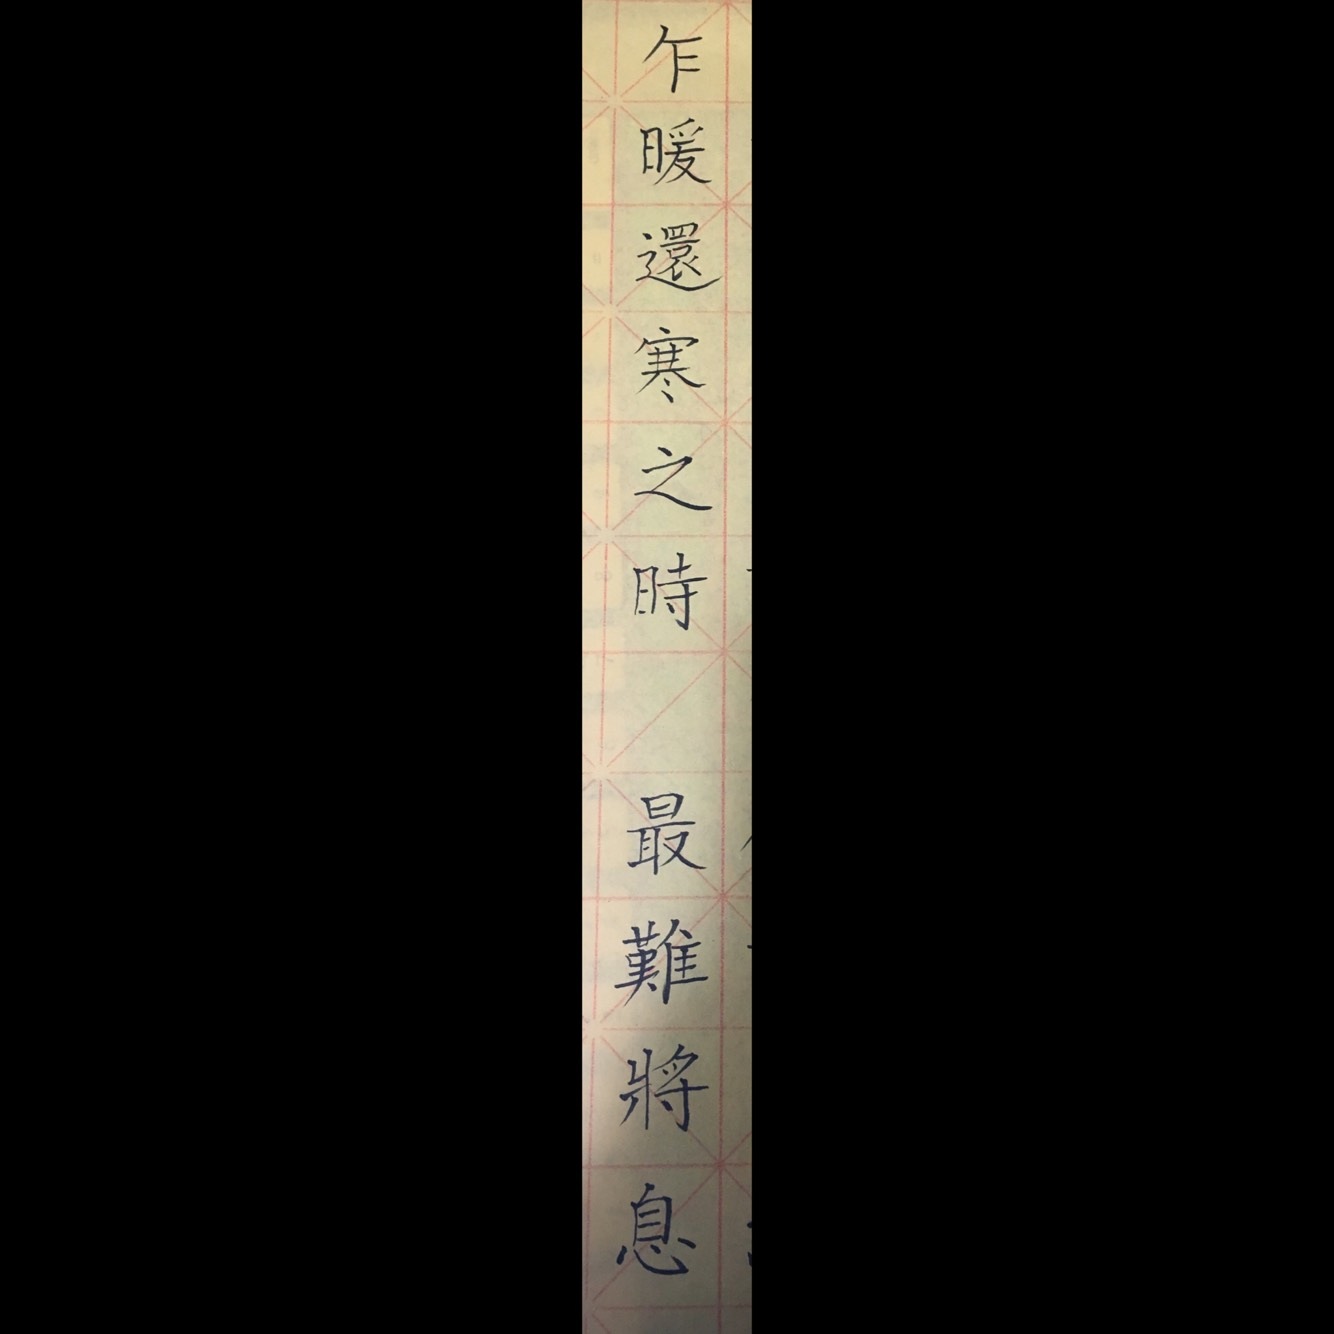 乍暖還寒之時 最難將息